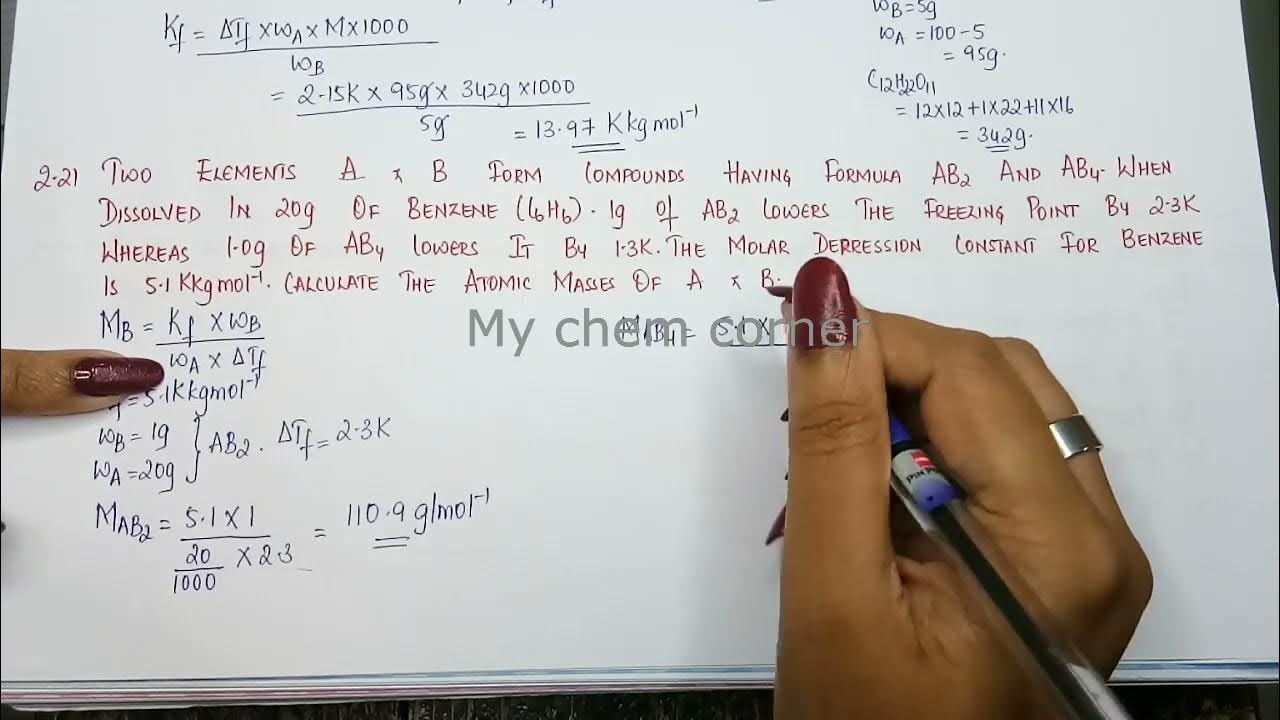 Kf = ΔTf × wA × M × 1000
wB
= 2.15K × 95g × 342g × 1000
5g
= 13.97 K kg mol⁻¹
wB = 5g
wA = 100 - 5
= 95g.
C12H22O11
= 12×12 + 1×22 + 11×16
= 342g.
2.21 TWO ELEMENTS A & B FORM COMPOUNDS HAVING FORMULA AB2 AND AB4. WHEN
DISSOLVED IN 20g OF BENZENE (C6H6). 1g OF AB2 LOWERS THE FREEZING POINT BY 2.3K
WHEREAS 1.0g OF AB4 LOWERS IT BY 1.3K. THE MOLAR DERRESSION CONSTANT FOR BENZENE
IS 5.1 KKgmol⁻¹. CALCULATE THE ATOMIC MASSES OF A & B.
MB = Kf × wB
wA × ΔTf
= 5.1Kkgmol⁻¹
wB = 1g
wA = 20g } AB2. ΔTf = 2.3K
MAB2 = 5.1 × 1
20/1000 × 2.3
= 110.9 g/mol⁻¹
MAB4 = 5.1 ×
My chem corner
PIN